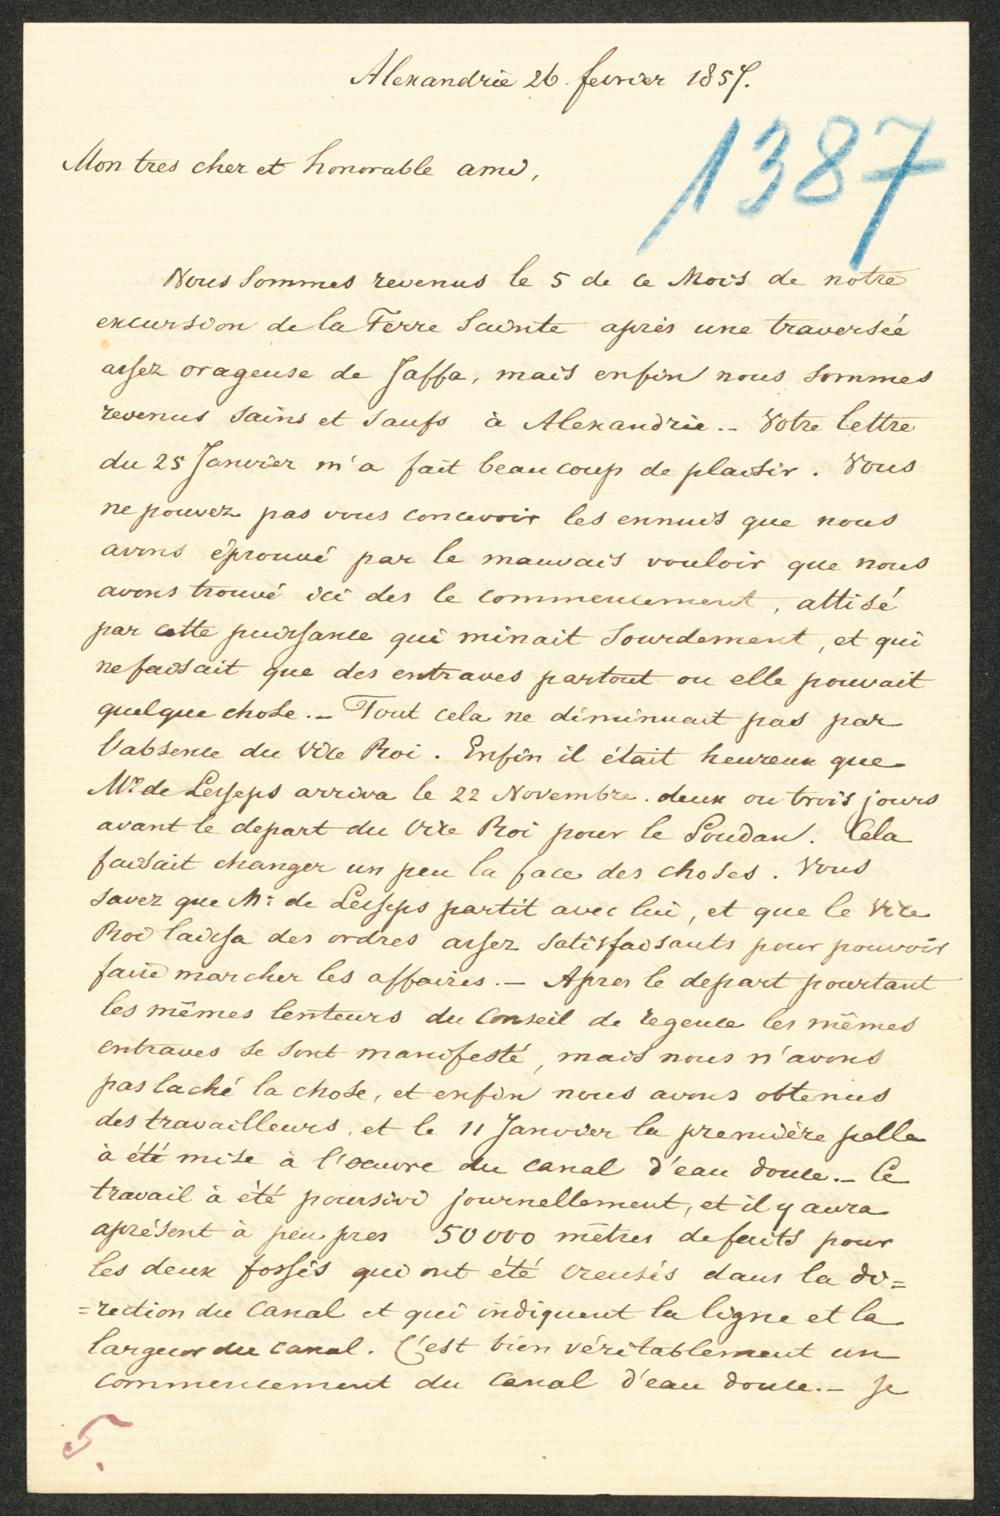 Alexandrie 26 fevrier 1857.
1387
Mon tres cher et honorable ami,
Nous sommes revenus le 5 de ce Mois de notre
excursion de la Terre Sainte après une traversée
assez orageuse de Jaffa, mais enfin nous sommes
revenus sains et saufs à Alexandrie.. Votre lettre
du 25 Janvier m'a fait beaucoup de plaisir. Vous
ne pouvez pas vous concevoir les ennuis que nous
avons éprouvé par le mauvais vouloir que nous
avons trouvé ici des le commencement, attisé
par cette puissance qui minait sourdement, et qui
ne faisait que des entraves partout ou elle pouvait
quelque chose.- Tout cela ne diminuait pas par
l'absence du Vice Roi. Enfin il était heureux que
Mr de Lesseps arriva le 22 Novembre. deux ou trois jours
avant le depart du Vice Roi pour le Soudan. Cela
faisait changer un peu la face des choses. Vous
savez que Mr de Lesseps partit avec lui, et que le Vice
Roi laissa des ordres assez satisfaisants pour pouvoir
faire marcher les affaires.- Apres le depart pourtant
les mêmes lenteurs du Conseil de regence les mêmes
entraves se sont manifesté, mais nous n'avons
pas laché la chose, et enfin nous avons obtenus
des travailleurs, et le 11 Janvier la première pelle
à été mise à l'oeuvre du canal d'eau douce.- Ce
travail à été poursivi journellement, et il y aura
aprésent à peu pres 50000 mètres de faits pour
les deux fossés qui ont été creusés dans la di=
=rection du Canal et qui indiquent la ligne et la
largeur du canal. C'est bien véritablement un
commencement du Canal d'eau douce.- Je
5.